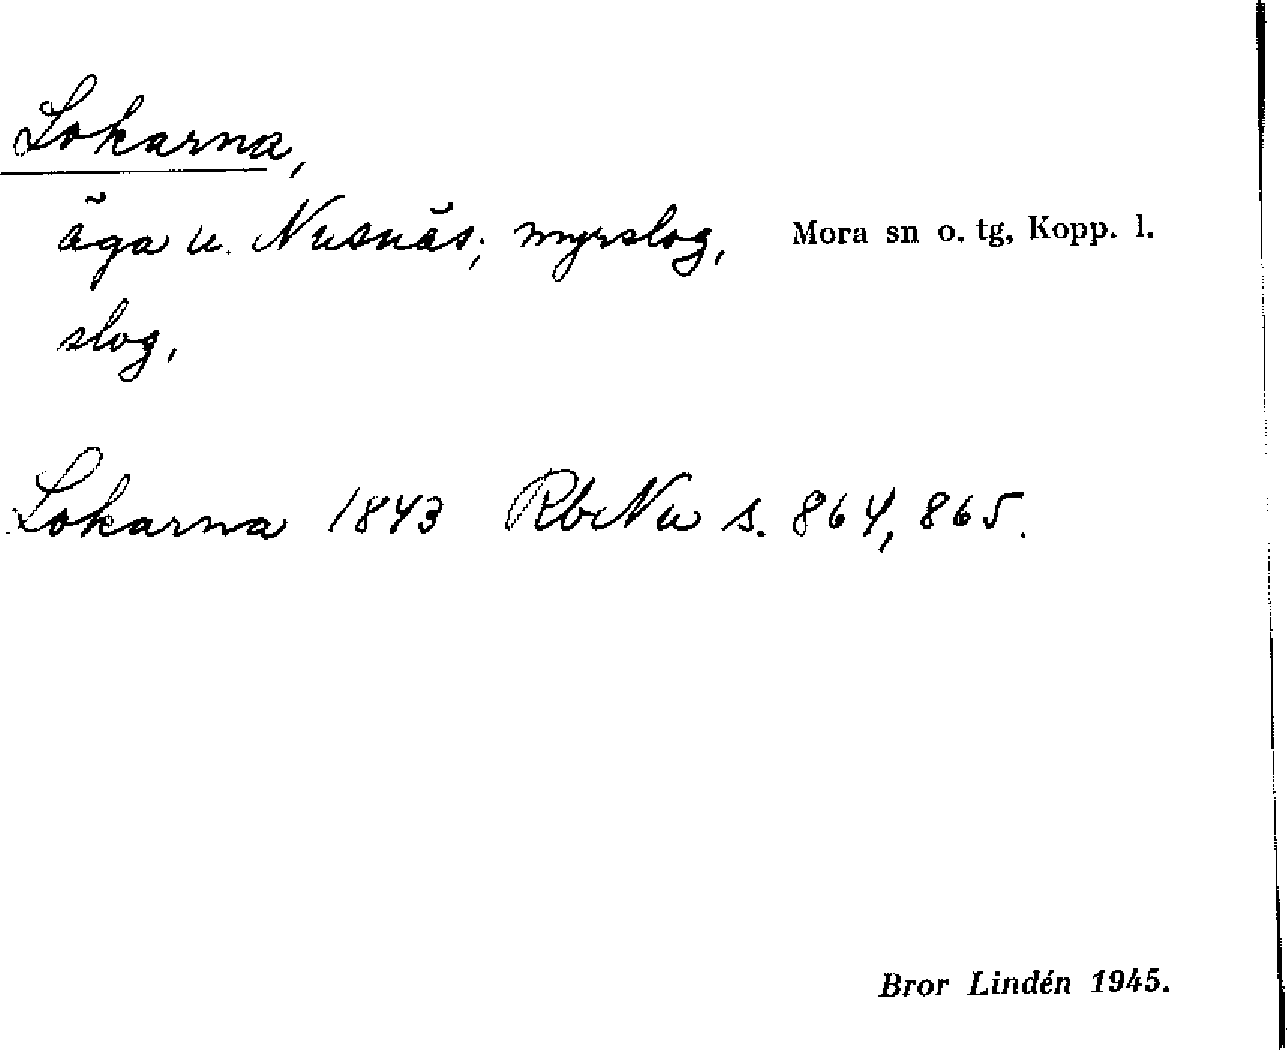 Lokarna,
äga u. Nusnäs; myrslog, Mora sn o. tg, Kopp. l.
slog,
Lokarna 1843 RbNu s. 864, 865.
Bror Lindén 1945.